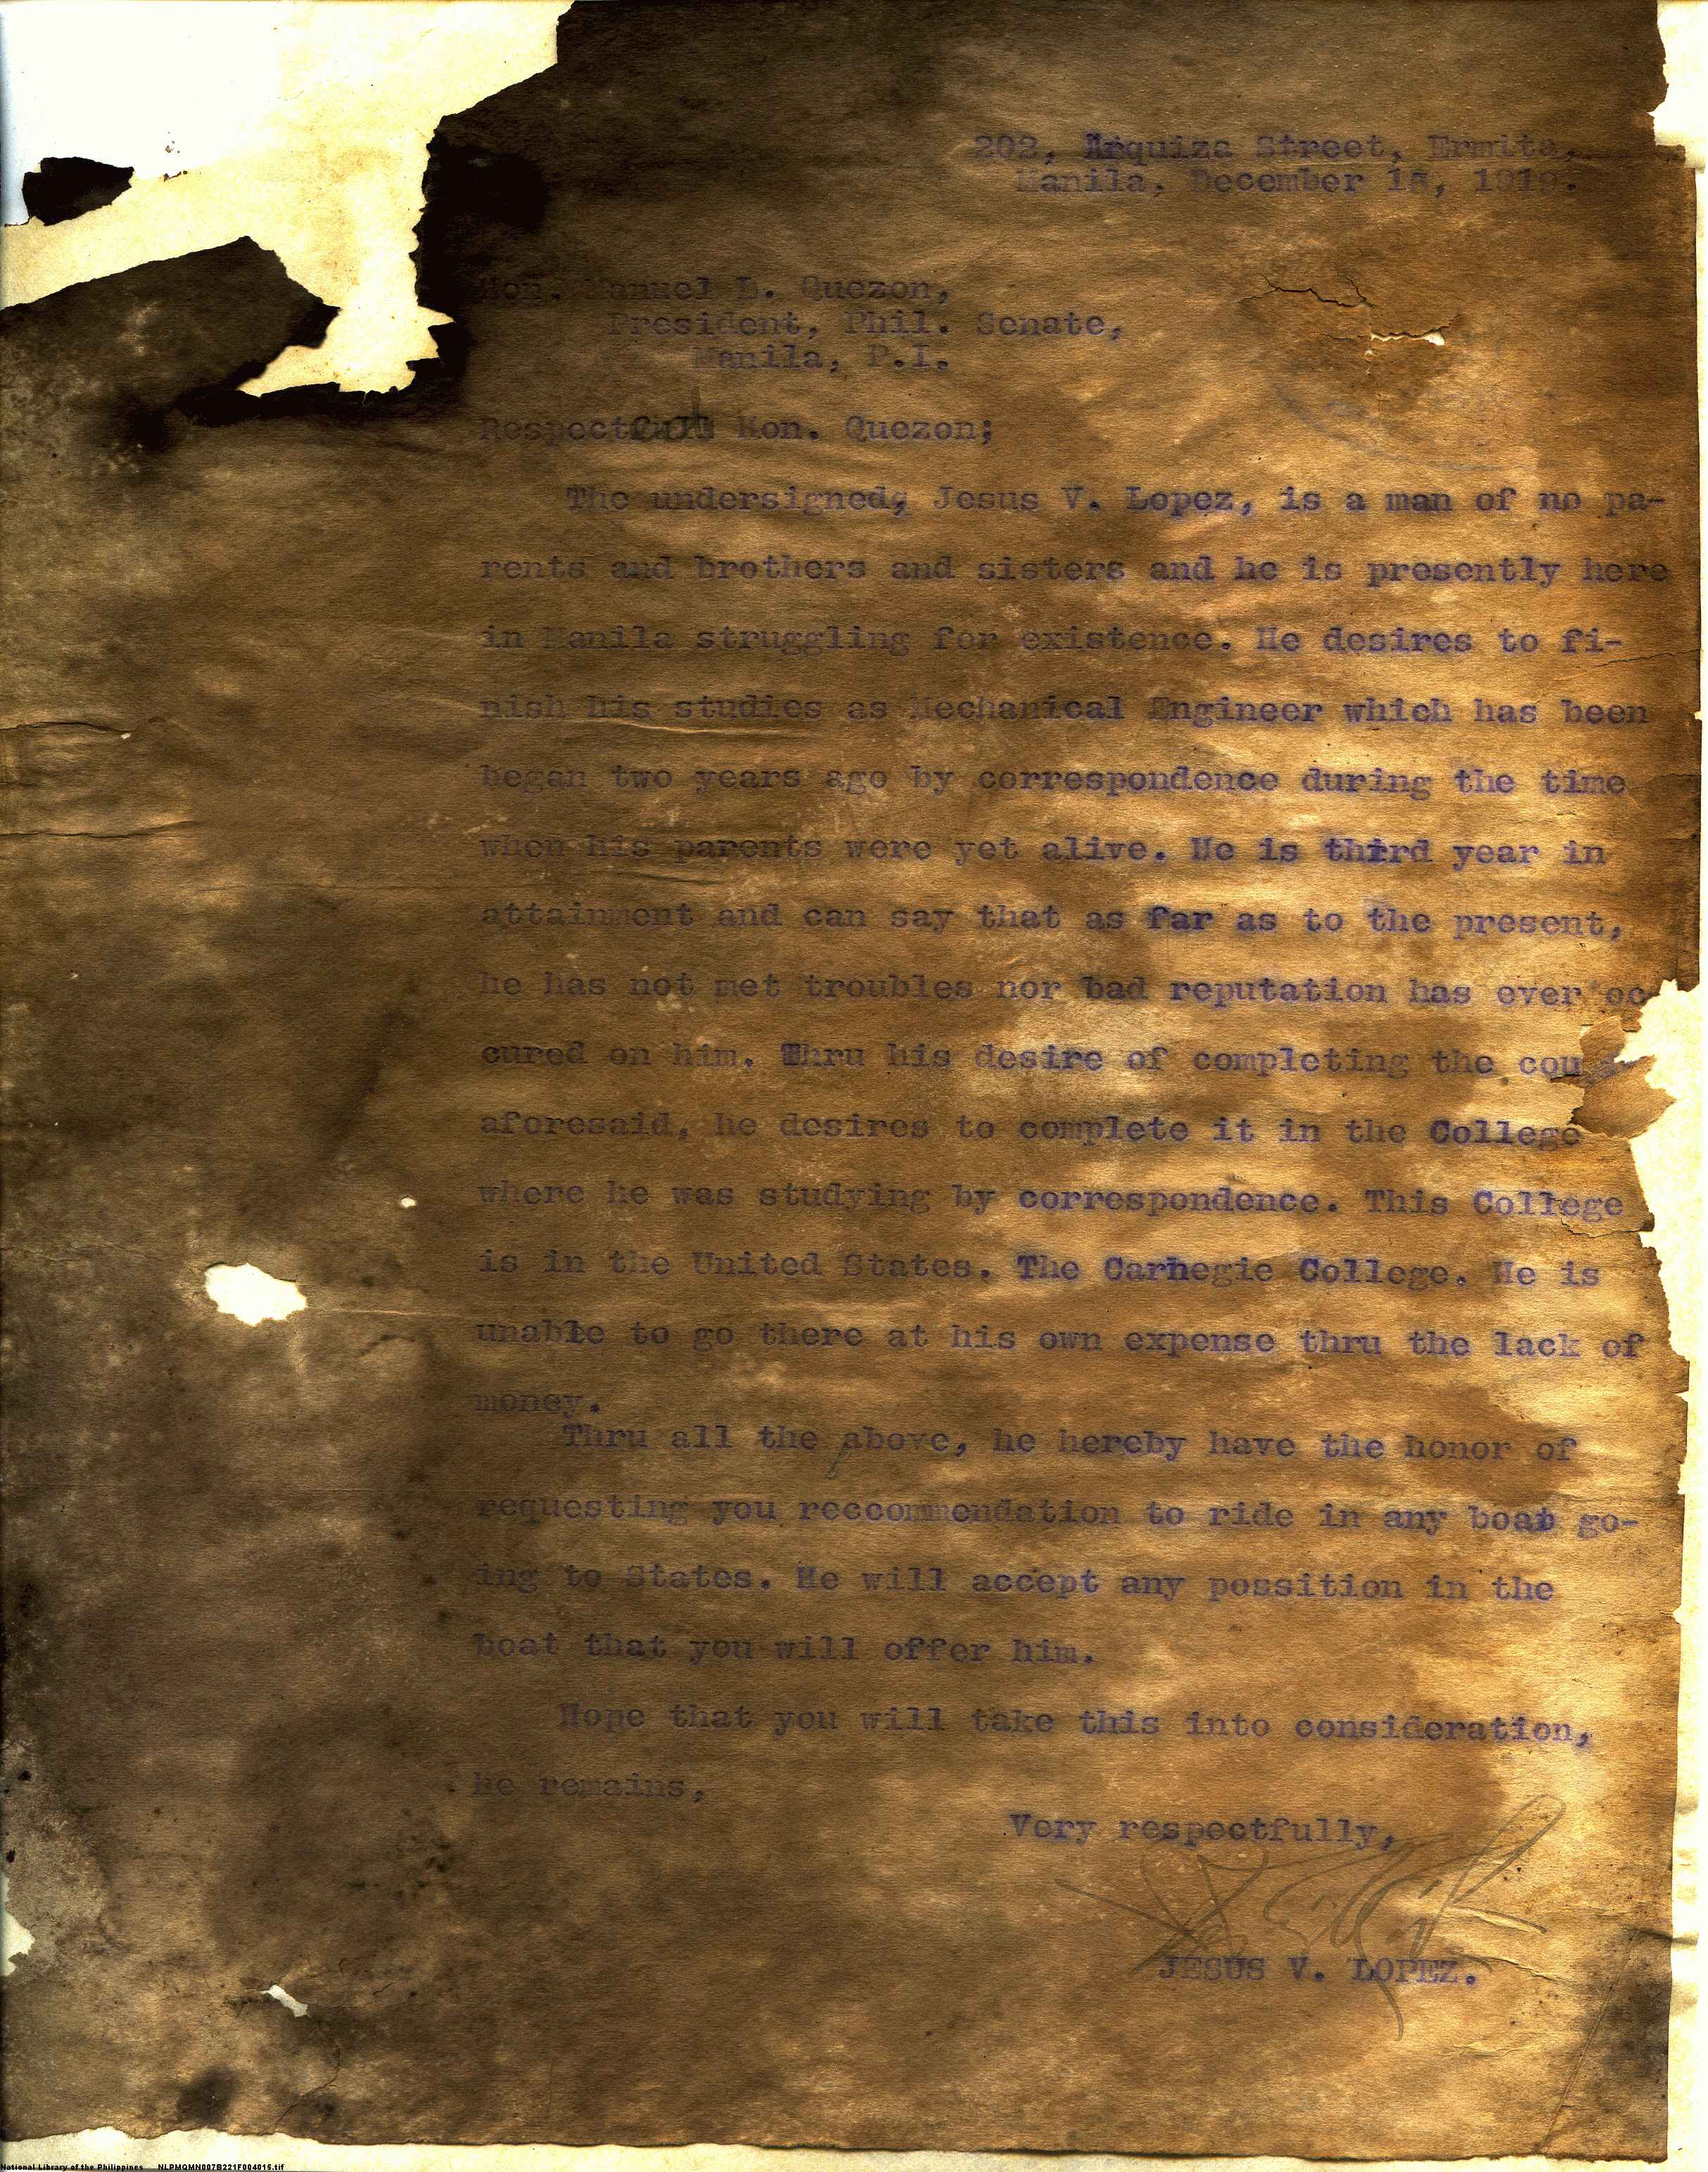 202, Arquiza Street, Ermita,
Manila, December 15, 1919.
Hon. Manuel L. Quezon,
President, Phil. Senate,
Manila, P.I.
Respectfull Hon. Quezon;
The undersigned, Jesus V. Lopez, is a man of no pa-
rents and brothers and sisters and he is presently here
in Manila struggling for existence. He desires to fi-
nish his studies as Mechanical Engineer which has been
began two years ago by correspondence during the time
when his parents were yet alive. He is third year in
attainment and can say that as far as to the present,
he has not met troubles nor bad reputation has ever oc
cured on him. Thru his desire of completing the
aforesaid, he desires to complete it in the College
where he was studying by correspondence. This College
is in the United States. The Carnegie College. He is
unable to go there at his own expense thru the lack of
money.
Thru all the above, he hereby have the honor of
requesting you reccommendation to ride in any boat go-
ing to States. He will accept any possition in the
boat that you will offer him.
Hope that you will take this into consideration,
he remains,
Very respectfully,
JESUS V. LOPEZ.
National Library of the Philippines NLPMQMN007B221F004015.tif